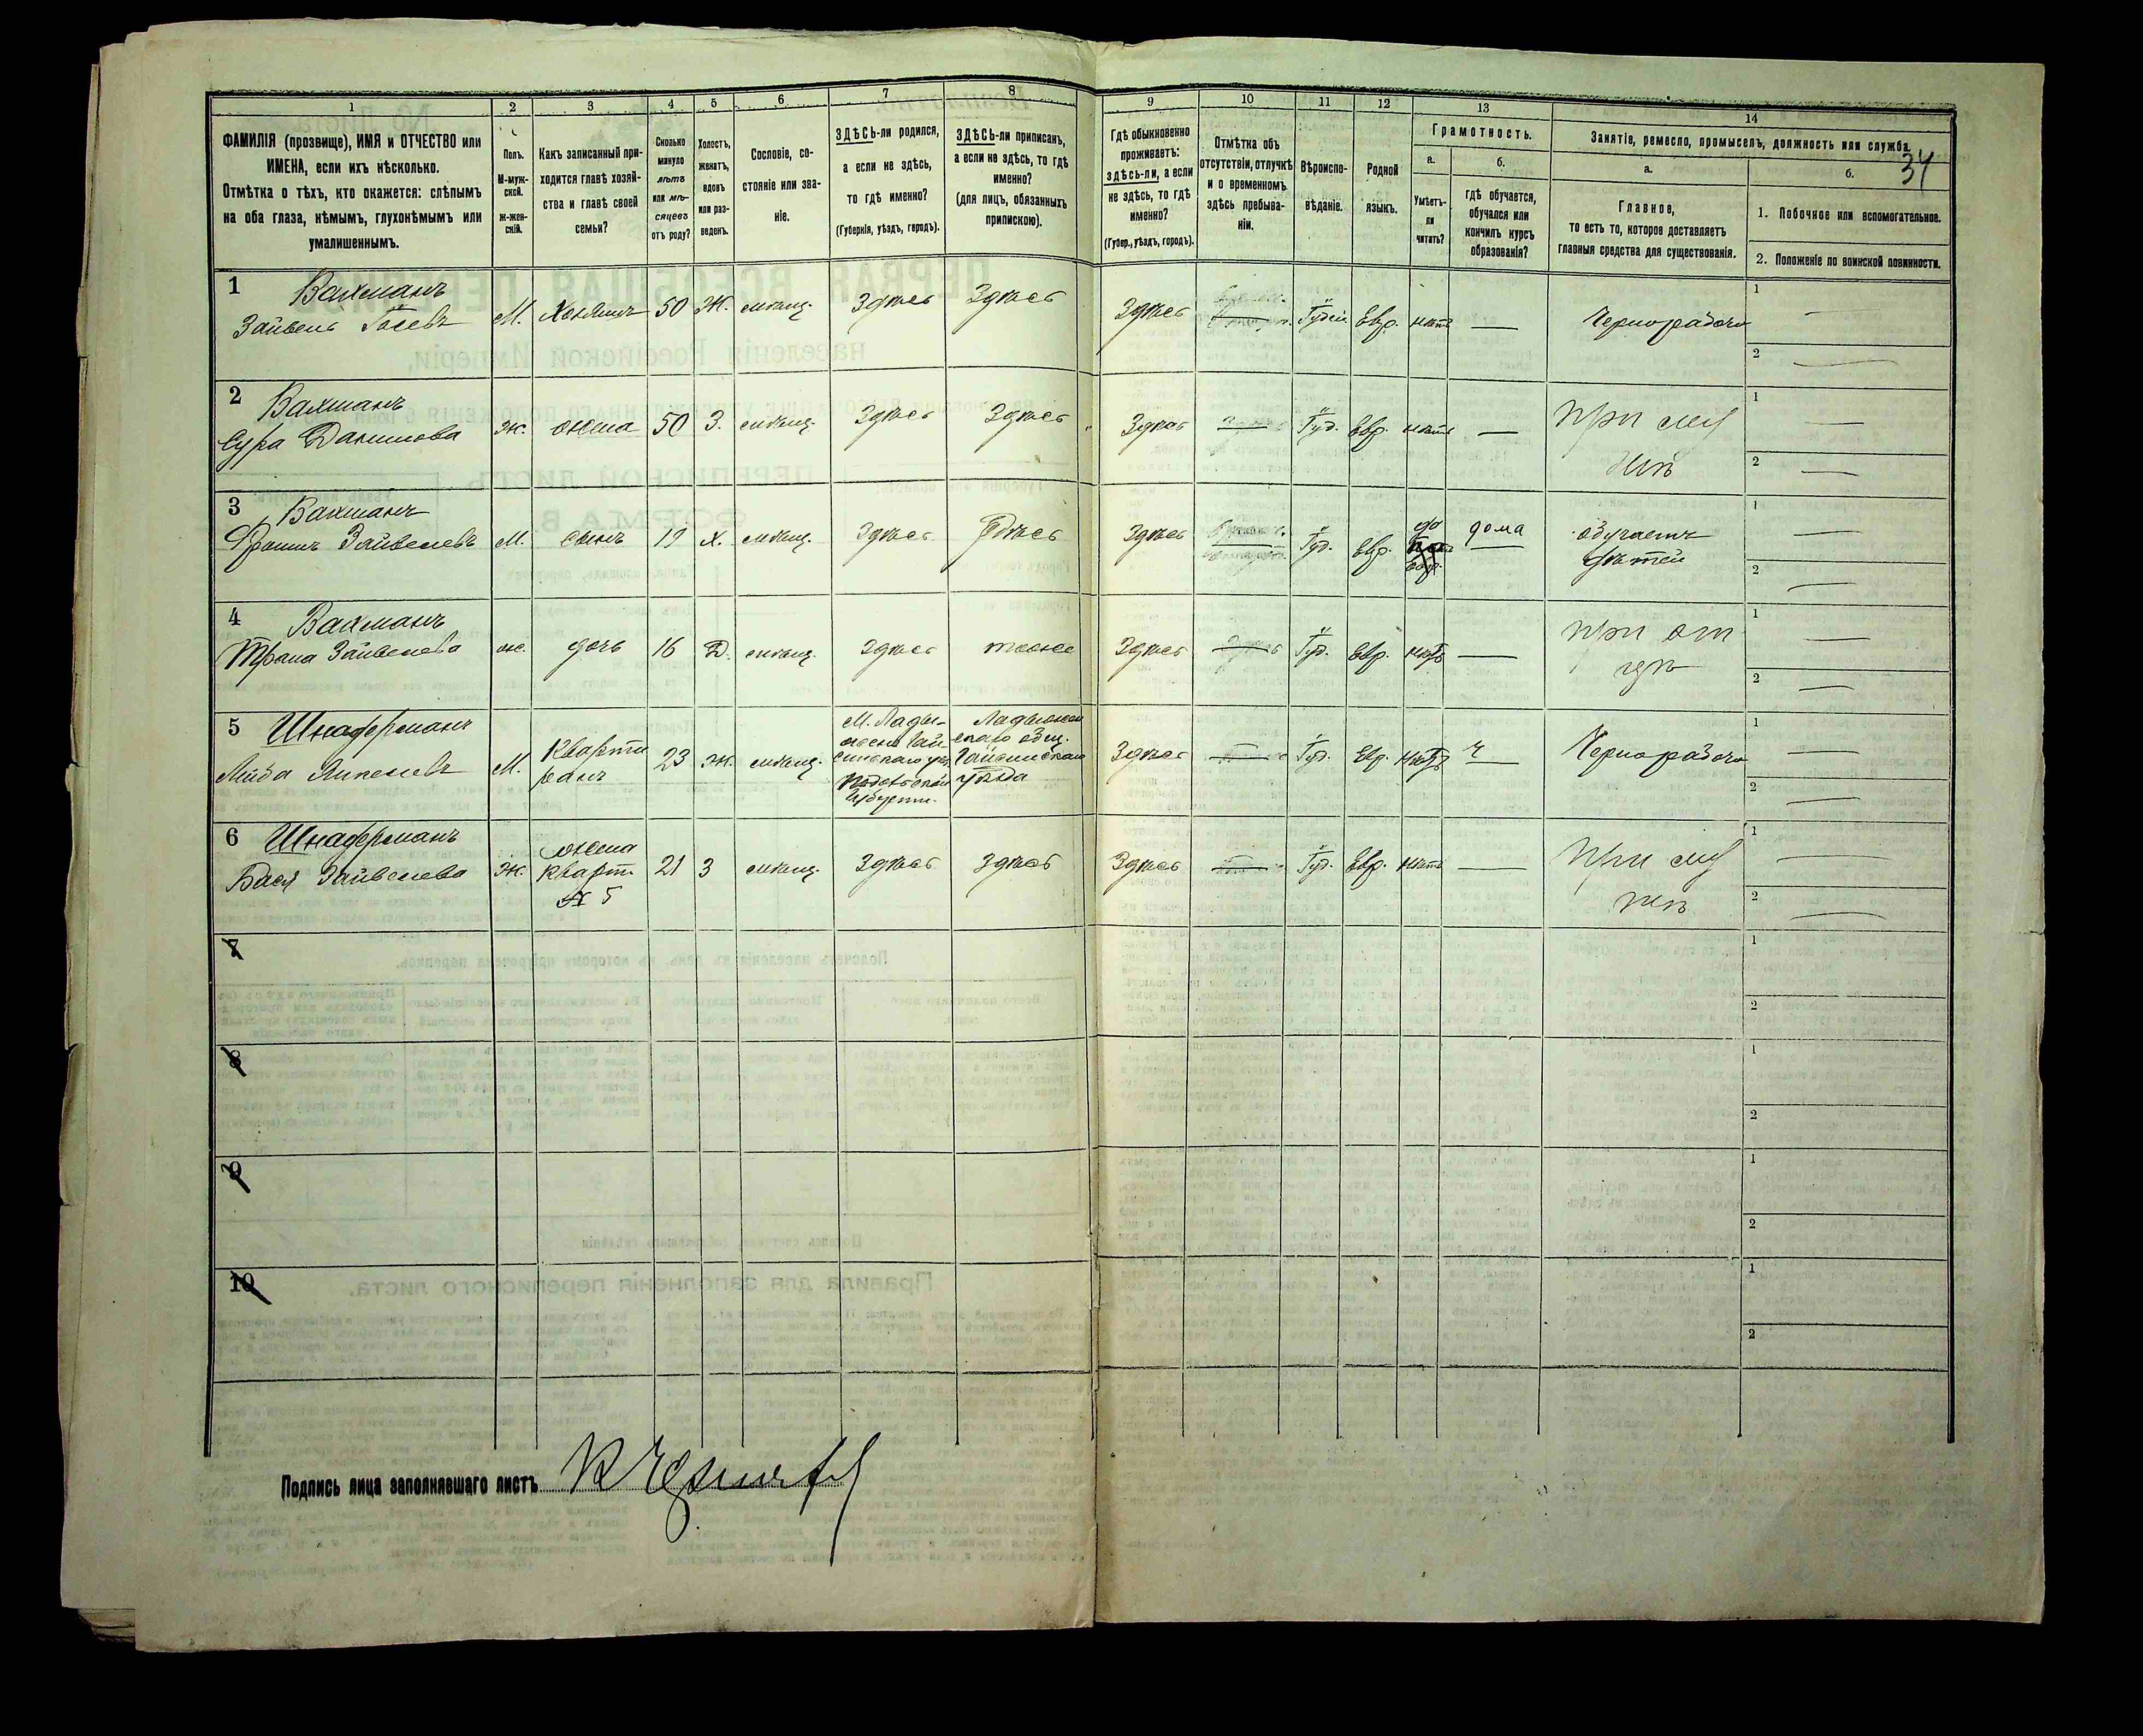 1 2 3 4 5 6 7 8 9 10 11 12 13 14
ФАМИЛІЯ (прозвище), ИМЯ и ОТЧЕСТВО или
ИМЕНА, если ихъ нѣсколько.
Отмѣтка о тѣхъ, кто окажется: слѣпымъ
на оба глаза, нѣмымъ, глухонѣмымъ или
умалишеннымъ.
Полъ.
М-муж-
ской.
Ж-жен-
скій.
Какъ записанный при-
ходится главѣ хозяй-
ства и главѣ своей
семьи?
Сколько
минуло
лѣтъ
или мѣ-
сяцевъ
отъ роду?
Холостъ,
женатъ,
вдовъ
или раз-
веденъ.
Сословіе, со-
стояніе или зва-
ніе.
ЗДѢСЬ-ли родился,
а если не здѣсь,
то гдѣ именно?
(Губернія, уѣздъ, городъ).
ЗДѢСЬ-ли приписанъ,
а если не здѣсь, то гдѣ
именно?
(для лицъ, обязанныхъ
припискою).
Гдѣ обыкновенно
проживаетъ:
здѣсь-ли, а если
не здѣсь, то гдѣ
именно?
(Губер., уѣздъ, городъ).
Отмѣтка объ
отсутствіи, отлучкѣ
и о временномъ
здѣсь пребыва-
ніи.
Вѣроиспо-
вѣданіе.
Родной
языкъ.
Грамотность.
а.
Умѣетъ-
ли
читать?
б.
гдѣ обучается,
обучался или
кончилъ курсъ
образованія?
Занятіе, ремесло, промыселъ, должность или служба.
а.
Главное,
то есть то, которое доставляетъ
главныя средства для существованія.
б. 34
1. Побочное или вспомогательное.
2. Положеніе по воинской повинности.
1 Вахманъ
Зайвель М. Хозяинъ 50 Ж. мѣщ. Здѣсь Здѣсь Здѣсь Іудей Евр. нѣтъ — Чернорабочій
1 —
2 —
2 Вахманъ
Сура ж. жена 50 З. мѣщ. Здѣсь Здѣсь Здѣсь Іуд. Евр. нѣтъ — при му
жѣ
1 —
2 —
3 Вахманъ
Зайвелевъ М. сынъ 19 Х. мѣщ. Здѣсь Здѣсь Здѣсь Іуд. Евр. да дома обучаетъ
дѣтей
1 —
2 —
4 Вахманъ
Зайвелева ж. дочь 16 Д. мѣщ. Здѣсь тоже Здѣсь Іуд. Евр. нѣтъ — при от
цѣ
1 —
2 —
5 Шнадерманъ
М. Кварти
рантъ 23 ж. мѣщ.
М. Лады-
жень Гай-
синскаго уѣз.
Подольской
Губерн.
Ладыжин
скаго общ.
Гайсинскаго
уѣзда
Здѣсь Іуд. Евр. нѣтъ — Чернорабочій
1 —
2 —
6 Шнадерманъ
Бася Зайвелева ж. жена
кварт.
№ 5 21 З мѣщ. Здѣсь Здѣсь Здѣсь Іуд. Евр. нѣтъ — при му
жѣ
1 —
2 —
7
1
2
8
1
2
9
1
2
10
1
2
Подпись лица заполнявшаго листъ